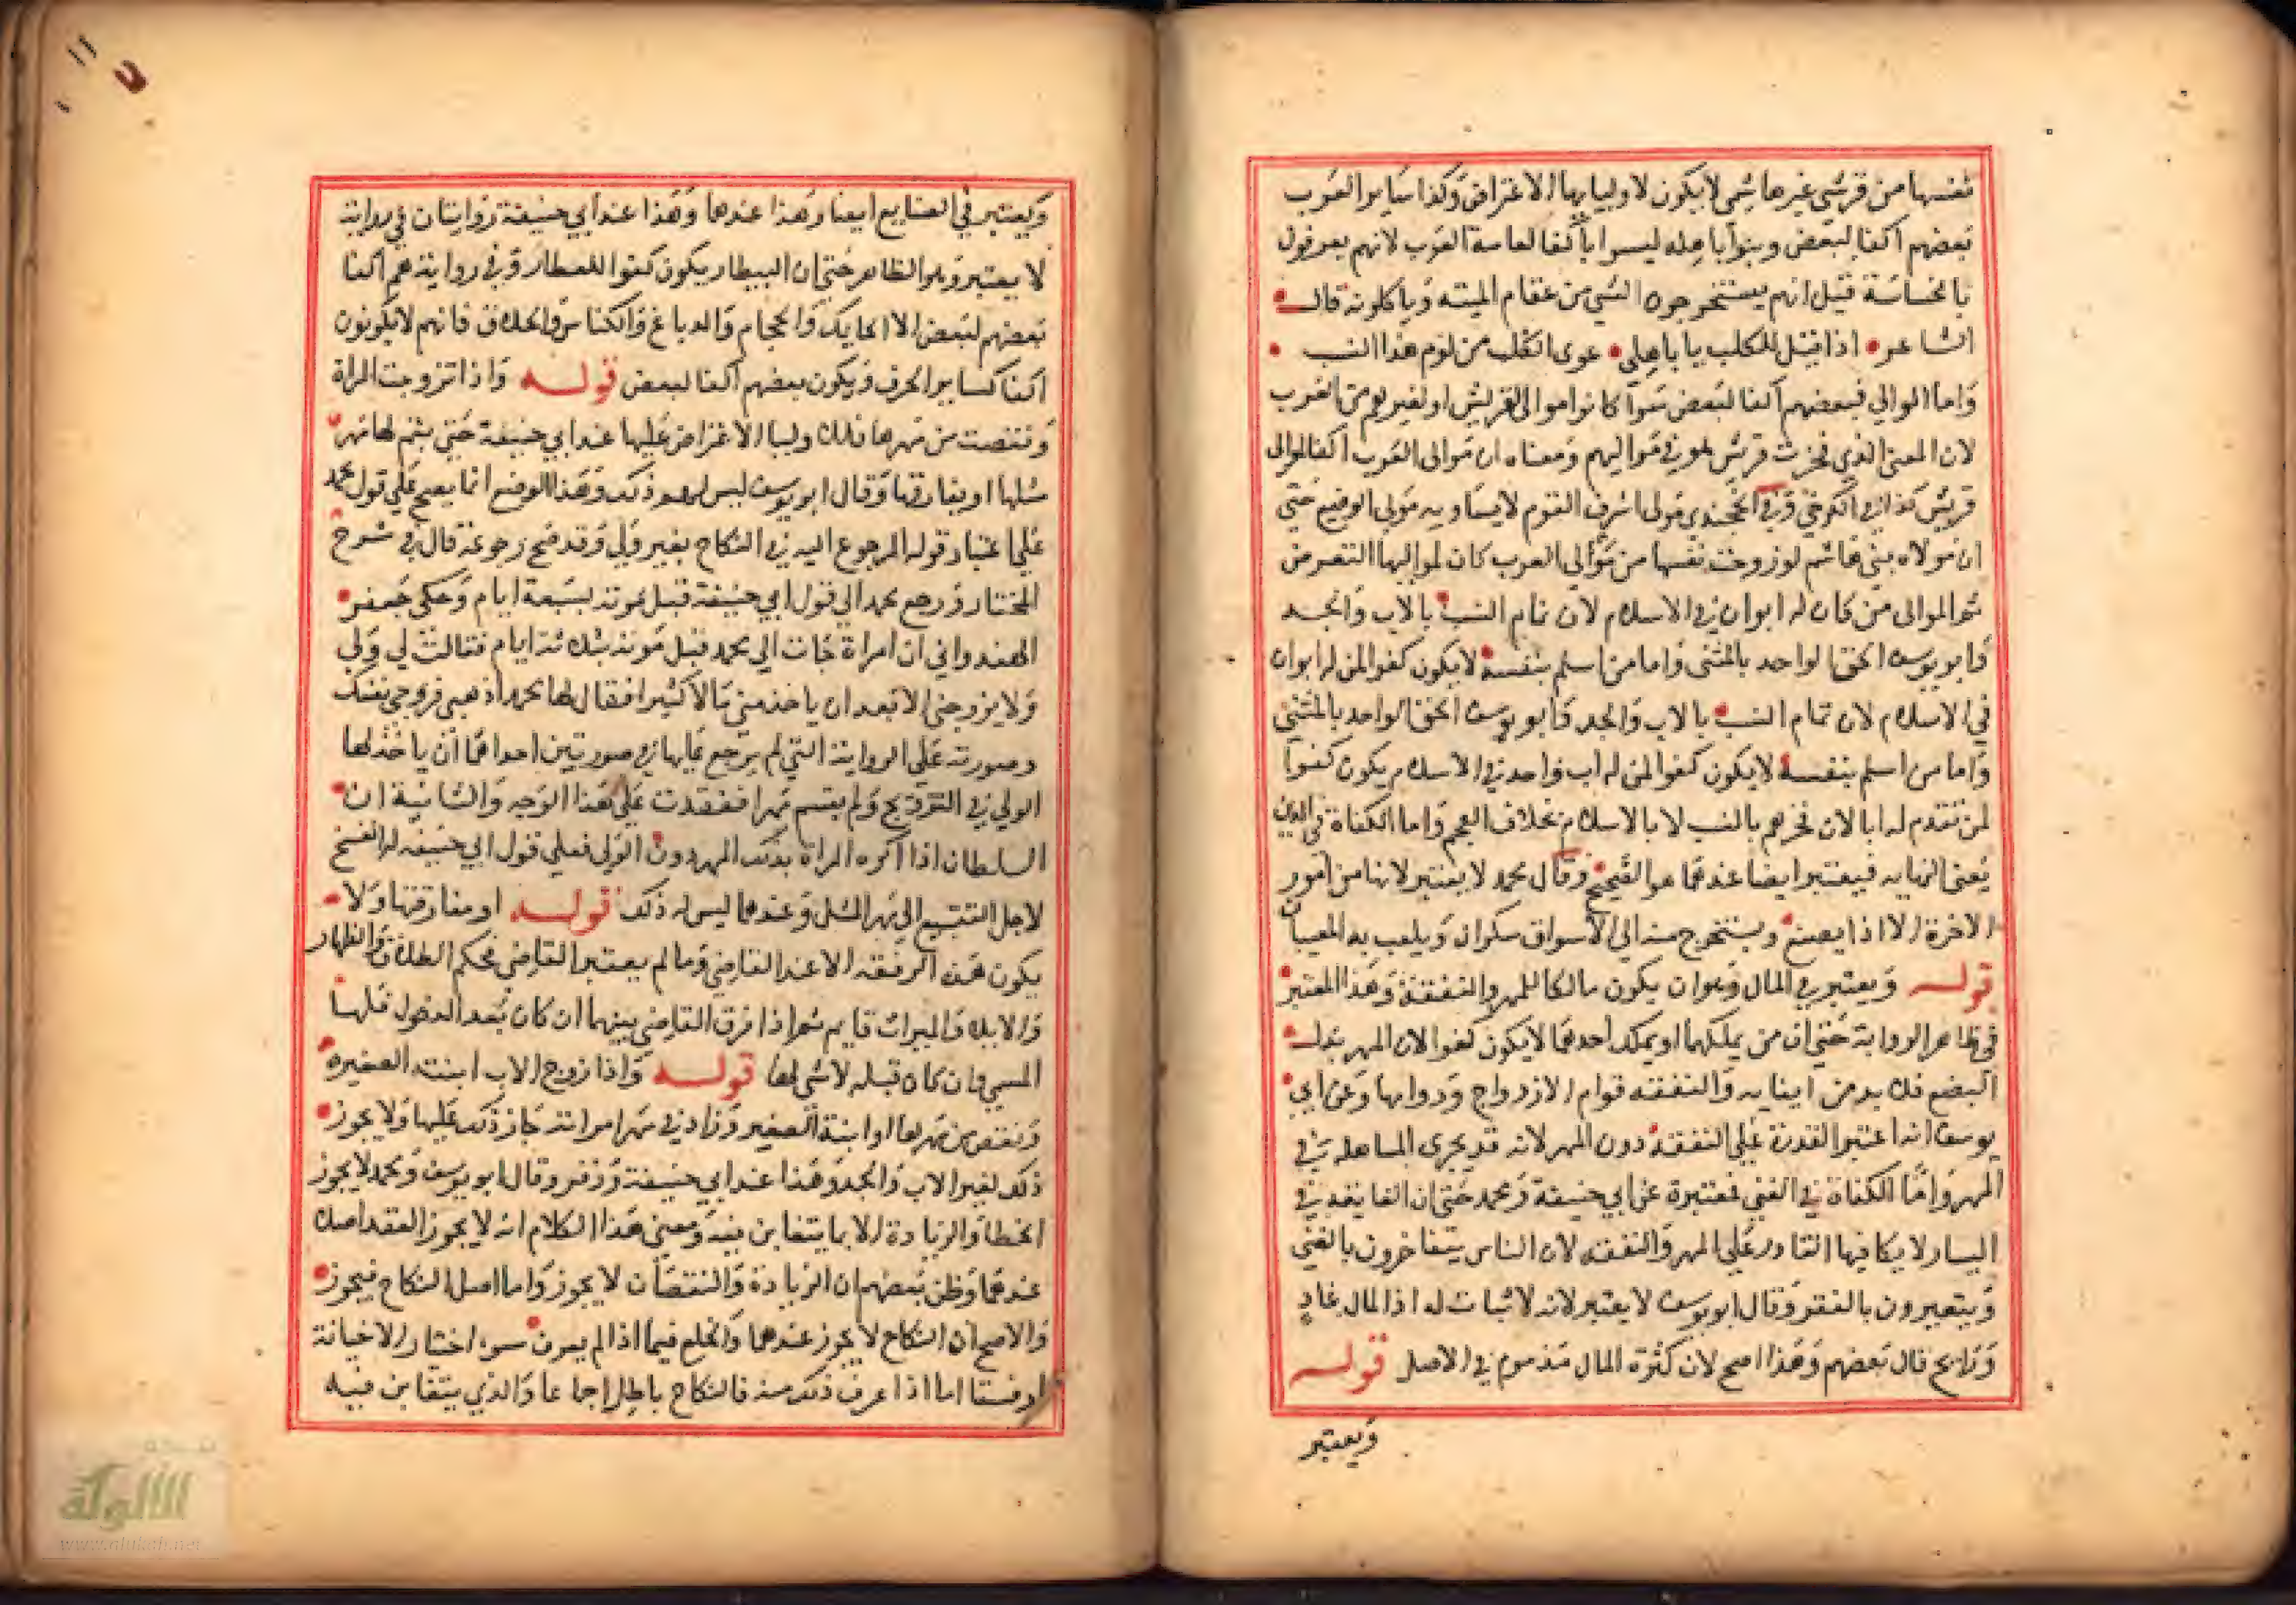 نفسها من قرشي غير هاشمي لا يكون لاوليايها الاعتراض وكذا سايرا العرب
بعضهم اكفا لبعض وبنوا باهله ليسوا باكفا لعامة العرب لانهم يعرفون
بالخساسة قيل انهم يستخرجون الشي من عظام الميته وياكلونه قال
الشاعر اذا قيل للكلب يا باهلي عوى الكلب من لوم هذا النسب
واما الموالي فبعضهم اكفا لبعض سوآ كانوا موالى القريش او لغيرهم من العرب
لان المعنى الذي فخرت قريش هو في مواليهم ومعناه ان موالى العرب اكفا لموالى
قريش كذا في الكرخي وفي الخجندي مولى اشرف القوم لا يساويه مولى الوضيع حتى
ان مولاه بني هاشم لو زوجت نفسها من موالي العرب كان لمواليها التعرض
ثم الموالى من كان له ابوان في الاسلام لان تمام النسب بالاب والجد
وابو يوسف الحق الواحد بالمثنى واما من اسلم بنفسه لا يكون كفوا لمن له ابوان
في الاسلام لان تمام النسب بالاب والجد وابو يوسف الحق الواحد بالمثنى
واما من اسلم بنفسه لا يكون كفوا لمن له اب واحد في الاسلام يكون كفوا
لمن تقدم له ابا لان فخرهم بالنسب لا بالاسلام بخلاف العجم واما الكفاة في الدين
يعنى الديانه فيعتبر ايضا عندهما هو الصحيح وقال محمد لا يعتبر لانها من امور
الاخرة الا اذا يصفع ويستخرج منه الى الاسواق سكران ويلعب به الصبيان
قوله ويعتبر في المال وهو ان يكون مالكا للمهر والنفقة وهذا المعتبر
في ظاهر الرواية حتى ان من يملكهما او يملك احدهما لا يكون كفوا لان المهر بدل
البضع فلا بد من ايفايه والنفقته قوام الازدواج ودوامها وعن ابي
يوسف انه اعتبر القدرة على النفقة دون المهر لانه قد يجرى المساهله في
المهر واما الكفاة في الغنى فمعتبرة عن ابي حنيفة ومحمد حتى ان الفايقه في
اليسار لا يكافيها القادر على المهر والنفقه لان الناس يتفاخرون بالغنى
ويتعيرون بالفقر وقال ابو يوسف لا يعتبر لانه لا ثبات له اذ المال غاد
ورايح قال بعضهم وهذا اصح لان كثرة المال مذموم في الاصل قوله
ويعتبر
١١
ويعتبر في الصنايع ايضا وهذا عندهما وهذا عند ابي حنيفة روايتان في رواية
لا يعتبر وهو الظاهر حتى ان البيطار يكون كفوا للعطار وفي رواية هم اكفا
بعضهم لبعض الا الحايك والحجام والدباغ والكناس والحلاق فانهم لا يكونون
اكفا كساير الحرف ويكون بعضهم اكفا لبعض قوله واذا تزوجت المراة
ونقصت من مهرها فللاوليا الاعتراض عليها عند ابي حنيفة حتى يتم لها مهر
مثلها او يفارقها وقال ابو يوسف ليس لهم ذلك وهذا الوضع انما يصح على قول محمد
على اعتبار قوله المرجوع اليه في النكاح بغير ولى وقد صح رجوعه قال في شرح
المختار ورجع محمد الى قول ابي حنيفة قبل موته بسبعة ايام وحكى جعفر
الهندواني ان امراة جات الى محمد قبل موته بثلاثة ايام فقالت لي ولي
ولا يزوجني الا بعد ان ياخذ مني مالا كثيرا فقال لها محمد اذهبي فزوجي نفسك
وصورته على الرواية التي لم يرجع عليها في صورتين احداهما ان ياذن لها
الولي في التزويج ولم يسم مهرا فعقدت على هذا الوجه والثانية ان
السلطان اذا اكره المراة بذلك المهر دون الولى فعلى قول ابي حنيفه له الفسخ
لاجل التتميم الى مهر المثل وعندهما ليس له ذلك قوله او مفارقتها ولا
يكون هذه الرفقه الا عند القاضي وما لم يعتبر القاضي فحكم الطلاق والظهار
والايلا والميراث قايم ثم اذا فرق القاضي بينهما ان كان بعد الدخول فلها
المسمي وان كان قبله لا شي لها قوله واذا زوج الاب ابنته الصغيره
ونقص من مهرها او ابنه الصغير وزاد في مهر امراته جاز ذلك عليهما ولا يجوز
ذلك لغير الاب والجد وهذا عند ابي حنيفة وزفر وقال ابو يوسف ومحمد لا يجوز
الحط والزيادة الا بما يتغابن فيه ومعنى هذا الكلام انه لا يجوز العقد اصلا
عندهما وظن بعضهم ان الزيادة والنقصان لا يجوز واما اصل النكاح فيجوز
والاصح ان النكاح لا يجوز عندهما والخلع فيما اذا لم يعرف سو اختيار الا خيانة
او فسقا اما اذا عرف ذلك منه فالنكاح باطل اجماعا والذي يتغابن فيه
الألوكة
www.alukah.net